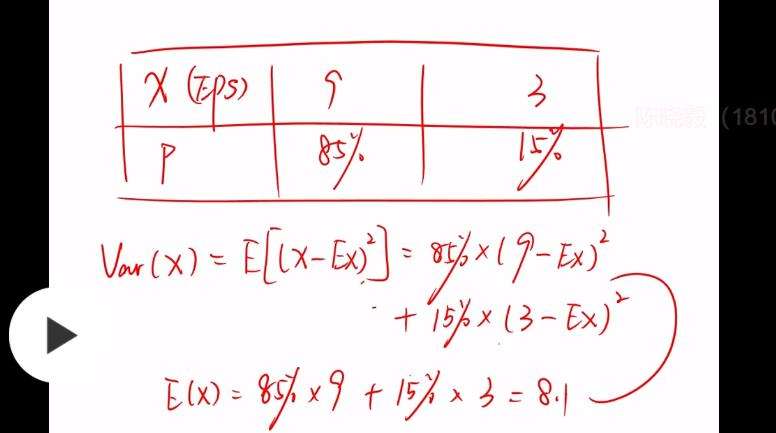 X (EPS) 9 3
P 85% 15%
Var(X) = E[(X-EX)²] = 85%×(9-EX)²
+ 15%×(3-EX)²
E(X) = 85%×9 + 15%×3 = 8.1
(1810